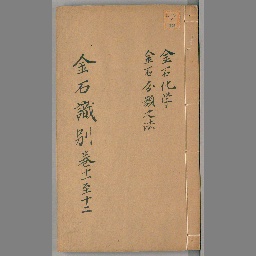 金石化學
金石分類之法
金石識別 卷十一至十二